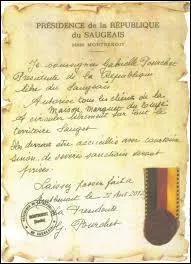 PRÉSIDENCE de la RÉPUBLIQUE
du SAUGEAIS
25650 MONTBENOIT
Je soussignée Gabrielle Pourchet
Présidente de la République
libre du Saugeais
Autorise tous les clients de la
Maison, Marquis du
A circuler librement sur tout le
territoire Sauget
Ils devront être accueillis avec courtoisie
sinon, de sévères sanctions seront
prises.
Laissez passer fait à
Montbenoit le 2012
La Présidente
G. Pourchet